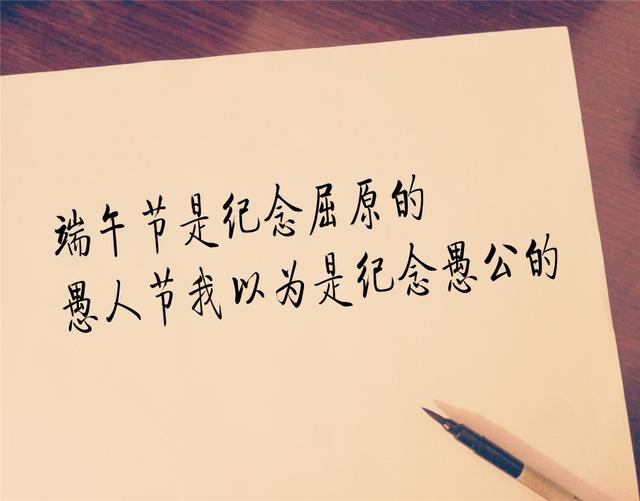 端午节是纪念屈原的
愚人节我以为是纪念愚公的